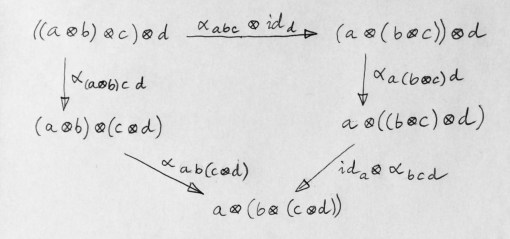 ((a⊗b)⊗c)⊗d α_{abc}⊗id_d (a⊗(b⊗c))⊗d
α_{(a⊗b)cd} α_{a(b⊗c)d}
(a⊗b)⊗(c⊗d) a⊗((b⊗c)⊗d)
α_{ab(c⊗d)} id_a⊗α_{bcd}
a⊗(b⊗(c⊗d))